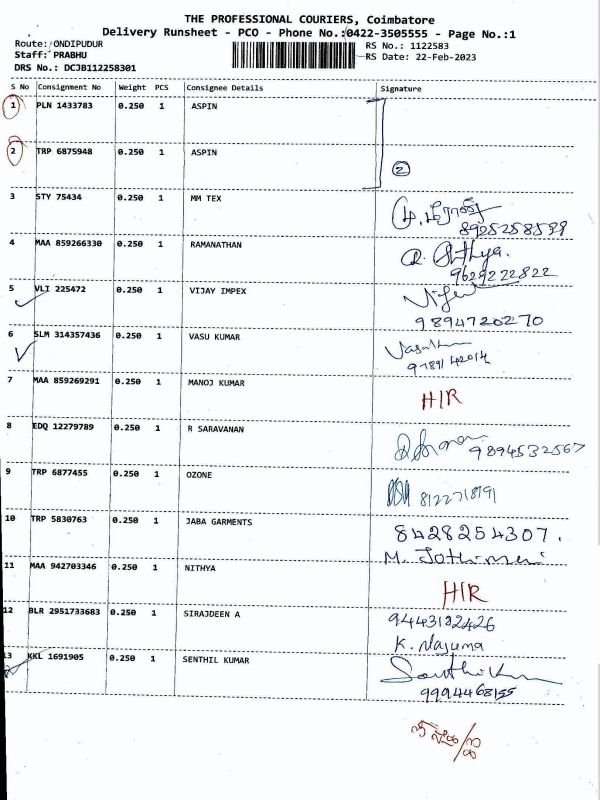 THE PROFESSIONAL COURIERS, Coimbatore
Delivery Runsheet - PCO - Phone No.:0422-3505555 - Page No.:1
Route: ONDIPUDUR RS No.: 1122583
Staff: PRABHU RS Date: 22-Feb-2023
DRS No.: DCJB112258301
S No Consignment No Weight PCS Consignee Details Signature
1 PLN 1433783 0.250 1 ASPIN
2 TRP 6875948 0.250 1 ASPIN
2
3 STY 75434 0.250 1 MM TEX
8925258598
4 MAA 859266330 0.250 1 RAMANATHAN
9629222822
5 VLI 225472 0.250 1 VIJAY IMPEX
9894720270
6 SLM 314357436 0.250 1 VASU KUMAR
9789142014
7 MAA 859269291 0.250 1 MANOJ KUMAR
H/R
8 EDQ 12279789 0.250 1 R SARAVANAN
9894532567
9 TRP 6877455 0.250 1 OZONE
8122718191
10 TRP 5830763 0.250 1 JABA GARMENTS
8428254307.
M. Jothimani
11 MAA 942703346 0.250 1 NITHYA
H/R
12 BLR 2951733683 0.250 1 SIRAJDEEN A
9443122426
K. Najuma
13 KKL 1691905 0.250 1 SENTHIL KUMAR
9994468155